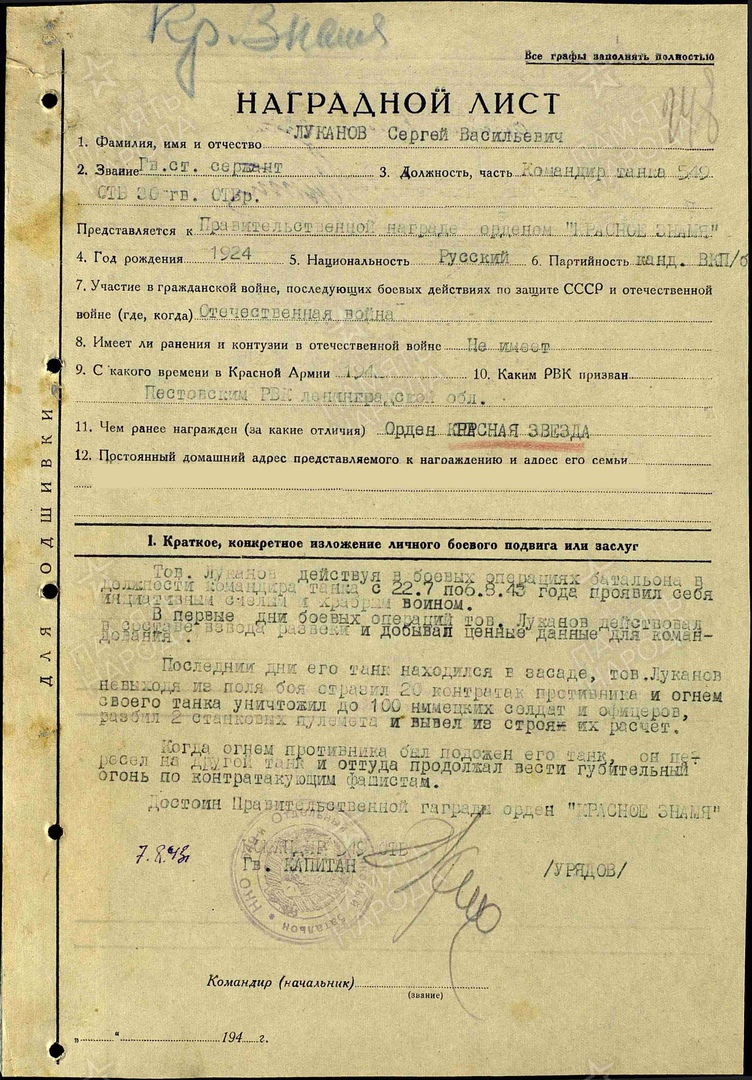 Кр. Знамя
Все графы заполнять полностью
248
НАГРАДНОЙ ЛИСТ
1. Фамилия, имя и отчество ЛУКАНОВ Сергей Васильевич
2. Звание Гв.ст. сержант 3. Должность, часть Командир танка 549
ОТБ 30 гв. ОТБр.
Представляется к Правительственной награде орденом "КРАСНОЕ ЗНАМЯ"
4. Год рождения 1924 5. Национальность Русский 6. Партийность канд. ВКП/б
7. Участие в гражданской войне, последующих боевых действиях по защите СССР и отечественной
войне (где, когда) Отечественная война
8. Имеет ли ранения и контузии в отечественной войне Не имеет
9. С какого времени в Красной Армии 10. Каким РВК призван
Пестовским РВК ленинградской обл.
11. Чем ранее награжден (за какие отличия) Орден КРАСНАЯ ЗВЕЗДА
12. Постоянный домашний адрес представляемого к награждению и адрес его семьи
I. Краткое, конкретное изложение личного боевого подвига или заслуг
Тов. Луканов действуя в боевых операциях батальона в
должности командира танка с 22.7 по 6.8.43 года проявил себя
инициативным смелым и храбрым воином.
В первые дни боевых операций тов. Луканов действовал
в составе взвода разведки и добывал ценные данные для коман-
дования .
Последнии дни его танк находился в засаде, тов.Луканов
невыходя из поля боя отразил 20 контратак противника и огнем
своего танка уничтожил до 100 нимецких солдат и офицеров,
разбил 2 станковых пулемета и вывел из строя их расчет.
Когда огнем противника был подожен его танк, он пе-
ресел на другой танк и оттуда продолжал вести губительный
огонь по контратакующим фашистам.
Достоин Правительственной гаграды орден "КРАСНОЕ ЗНАМЯ"
КОМАНДИР 549 ОТБ
7.8.43г
Гв. КАПИТАН /УРЯДОВ/
НКО Отдельный Батальон
Командир (начальник)
(звание)
„ “ 194 г.
ДЛЯ ПОДШИВКИ
ПАМЯТЬ НАРОДА